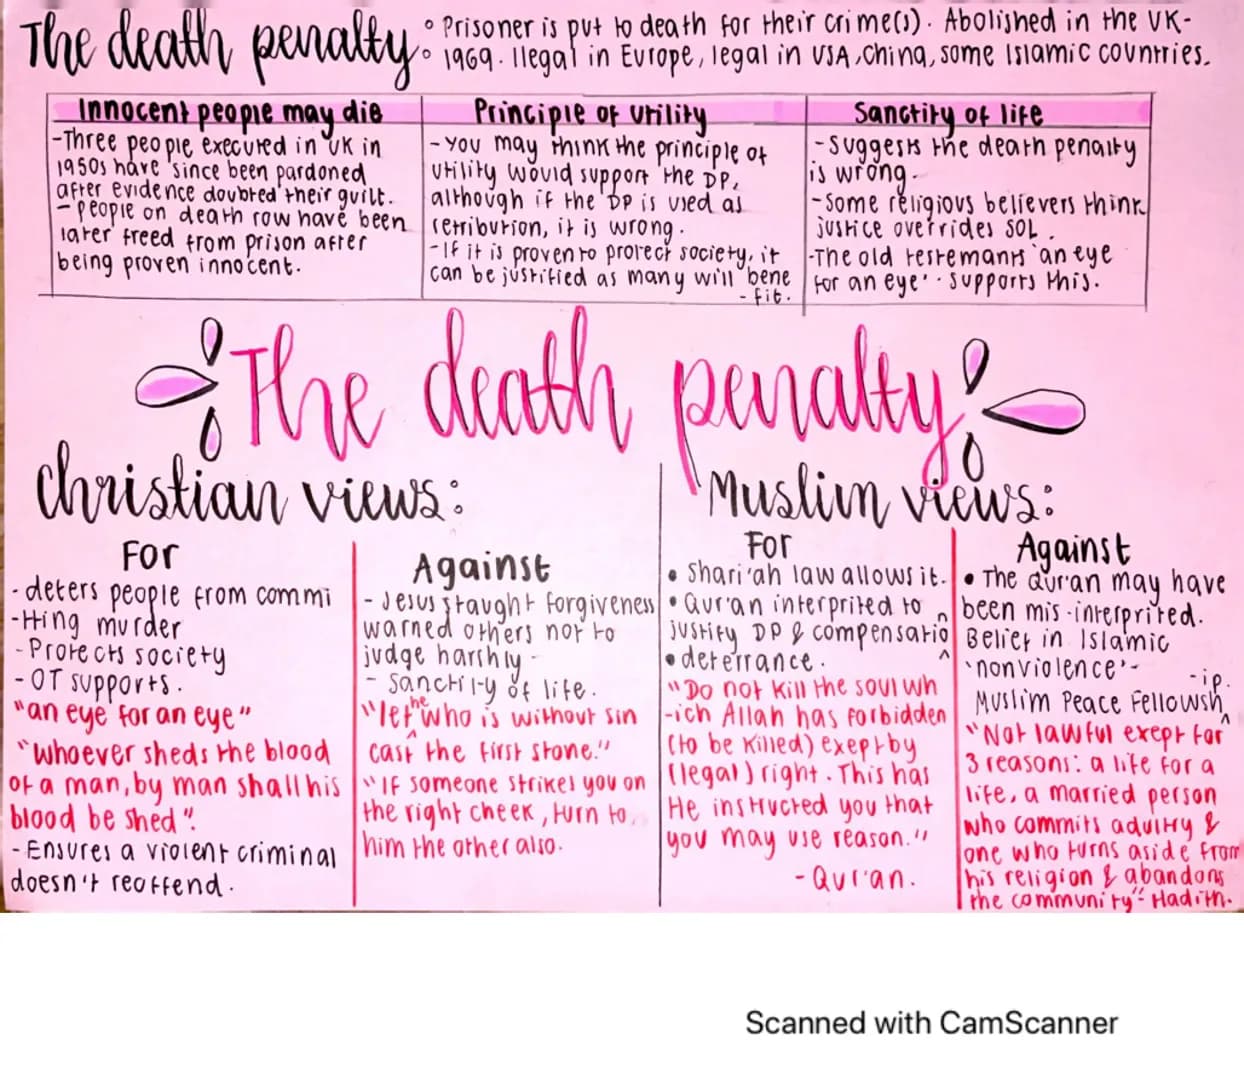 The death penalty
° Prisoner is put to death for their crime(s). Abolished in the UK-
° 1969. Ilegal in Europe, legal in USA, China, some Islamic countries.
Innocent people may die
-Three people executed in UK in
1950s have since been pardoned
after evidence doubted their guilt.
- people on death row have been
later freed from prison after
being proven innocent.
Principle of utility
- you may think the principle of
utility would support the DP,
although if the DP is used as
retribution, it is wrong.
-If it is proven to protect society, it
can be justified as many will bene
- fit.
Sanctity of life
- Suggests the death penalty
is wrong.
-Some religious believers think
justice overrides SOL.
-The old testemants 'an eye
for an eye' . supports this.
The death penalty
Christian views:
For
- deters people from commi
-tting murder
- Protects society
- OT supports.
"an eye for an eye"
"whoever sheds the blood
of a man, by man shall his
blood be shed".
- Ensures a violent criminal
doesn't reoffend.
Against
- Jesus taught forgiveness
warned others not to
judge harshly -
- Sanctity of life.
"let he who is without sin
cast the first stone."
"If someone strikes you on
the right cheek, turn to
him the other also.
Muslim views:
For
• Shari'ah law allows it.
• Qur'an interprited to
justify DP & compensation
• deterrance.
"Do not kill the soul wh
-ich Allah has forbidden
(to be killed) exept by
(legal) right. This has
He instructed you that
you may use reason."
- Qur'an.
Against
• The Qur'an may have
been mis-interprited.
Belief in Islamic
'nonviolence'-
-ip.
Muslim Peace Fellowsh
"Not lawful exept for
3 reasons: a life for a
life, a married person
who commits adultry &
one who turns aside from
his religion & abandons
the community"- Hadith.
Scanned with CamScanner